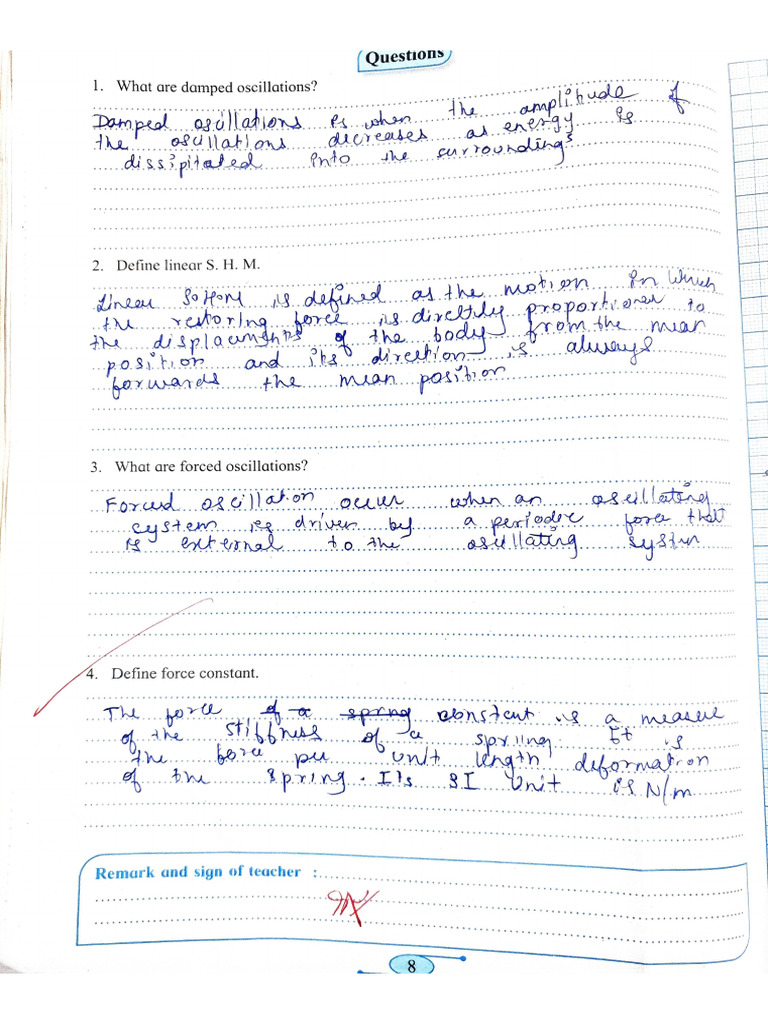 Questions
1. What are damped oscillations?
Damped oscillations is when the amplitude of
the oscillations decreases as energy is
dissipitated into the surroundings
2. Define linear S. H. M.
Linear S.H.M is defined as the motion in which
the restoring force is directly proportional to
the displacments of the body from the mean
position and its direction is always
forwards the mean position
3. What are forced oscillations?
Forced oscillation occur when an oscillating
system is driven by a periodic force that
is external to the oscillating system
4. Define force constant.
The force of a spring constent is a measure
of the stiffness of a spriing It is
the force per unit length deformation
of the spring. It's SI Unit is N/m
Remark and sign of teacher :
8